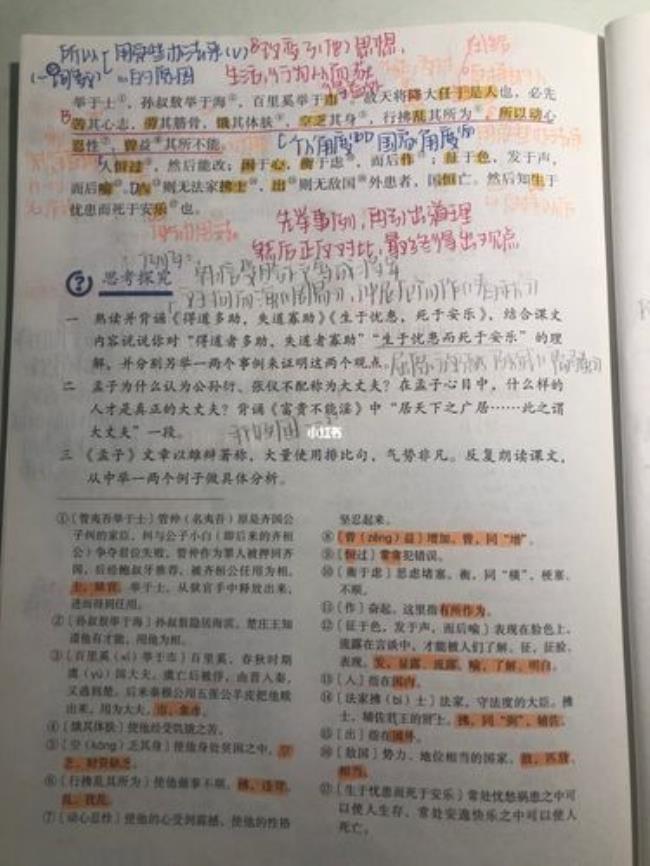 所以
用这些办法来(v)
改变了(他)思想,
的原因
生活,行为从而
举于士①,孙叔敖举于海②,百里奚举于市③。故天将降大任于是人也,必先
苦其心志,劳其筋骨,饿其体肤④,空乏其身⑤,行拂乱其所为⑥,所以动心
忍性⑦,曾益⑧其所不能。
个人角度 国家角度
人恒过⑨,然后能改;困于心,衡于虑⑩,而后作⑪;征于色,发于声,
而后喻⑫。入⑬则无法家拂士⑭,出⑮则无敌国⑯外患者,国恒亡。然后知生于
忧患而死于安乐⑰也。
先举事例,再引出道理
然后正反对比,最终得出观点
思考探究
一 熟读并背诵《得道多助,失道寡助》《生于忧患,死于安乐》,结合课文
内容说说你对“得道者多助,失道者寡助”“生于忧患而死于安乐”的理
解,并分别另举一两个事例来证明这两个观点。
二 孟子为什么认为公孙衍、张仪不配称为大丈夫?在孟子心目中,什么样的
人才是真正的大丈夫?背诵《富贵不能淫》中“居天下之广居……此之谓
大丈夫”一段。
小红书
三 《孟子》文章以雄辩著称,大量使用排比句,气势非凡。反复朗读课文,
从中举一两个例子做具体分析。
①〔管夷吾举于士〕管仲(名夷吾)原是齐国公
子纠的家臣,纠与公子小白(即后来的齐桓
公)争夺君位失败,管仲作为罪人被押回齐
国,后经鲍叔牙推荐,被齐桓公任用为相。
士,狱官。举于士,从狱官手中释放出来,
进而得到任用。
②〔孙叔敖举于海〕孙叔敖隐居海滨,楚庄王知
道他有才能,用他为相。
③〔百里奚(xī)举于市〕百里奚,春秋时期
虞(yú)国大夫。虞亡后被俘,由晋入秦,
又逃到楚。后来秦穆公用五张公羊皮把他赎
出来,用为大夫。市,集市。
④〔饿其体肤〕使他经受饥饿之苦。
⑤〔空(kòng)乏其身〕使他身处贫困之中。空
乏,财资缺乏。
⑥〔行拂乱其所为〕使他做事不顺。拂,违背。
乱,扰乱。
⑦〔动心忍性〕使他的心受到震撼,使他的性格
坚忍起来。
⑧〔曾(zēng)益〕增加。曾,同“增”。
⑨〔恒过〕常常犯错误。
⑩〔衡于虑〕思虑堵塞。衡,同“横”,梗塞、
不顺。
⑪〔作〕奋起。这里指有所作为。
⑫〔征于色,发于声,而后喻〕表现在脸色上,
流露在言谈中,才能被人们了解。征,征验、
表现。发,显露、流露。喻,了解、明白。
⑬〔入〕指在国内。
⑭〔法家拂(bì)士〕法家,守法度的大臣。拂
士,辅佐君王的贤士。拂,同“弼”,辅佐。
⑮〔出〕指在国外。
⑯〔敌国〕势力、地位相当的国家。敌,匹敌、
相当。
⑰〔生于忧患而死于安乐〕常处忧愁祸患之中可
以使人生存,常处安逸快乐之中可以使人
死亡。